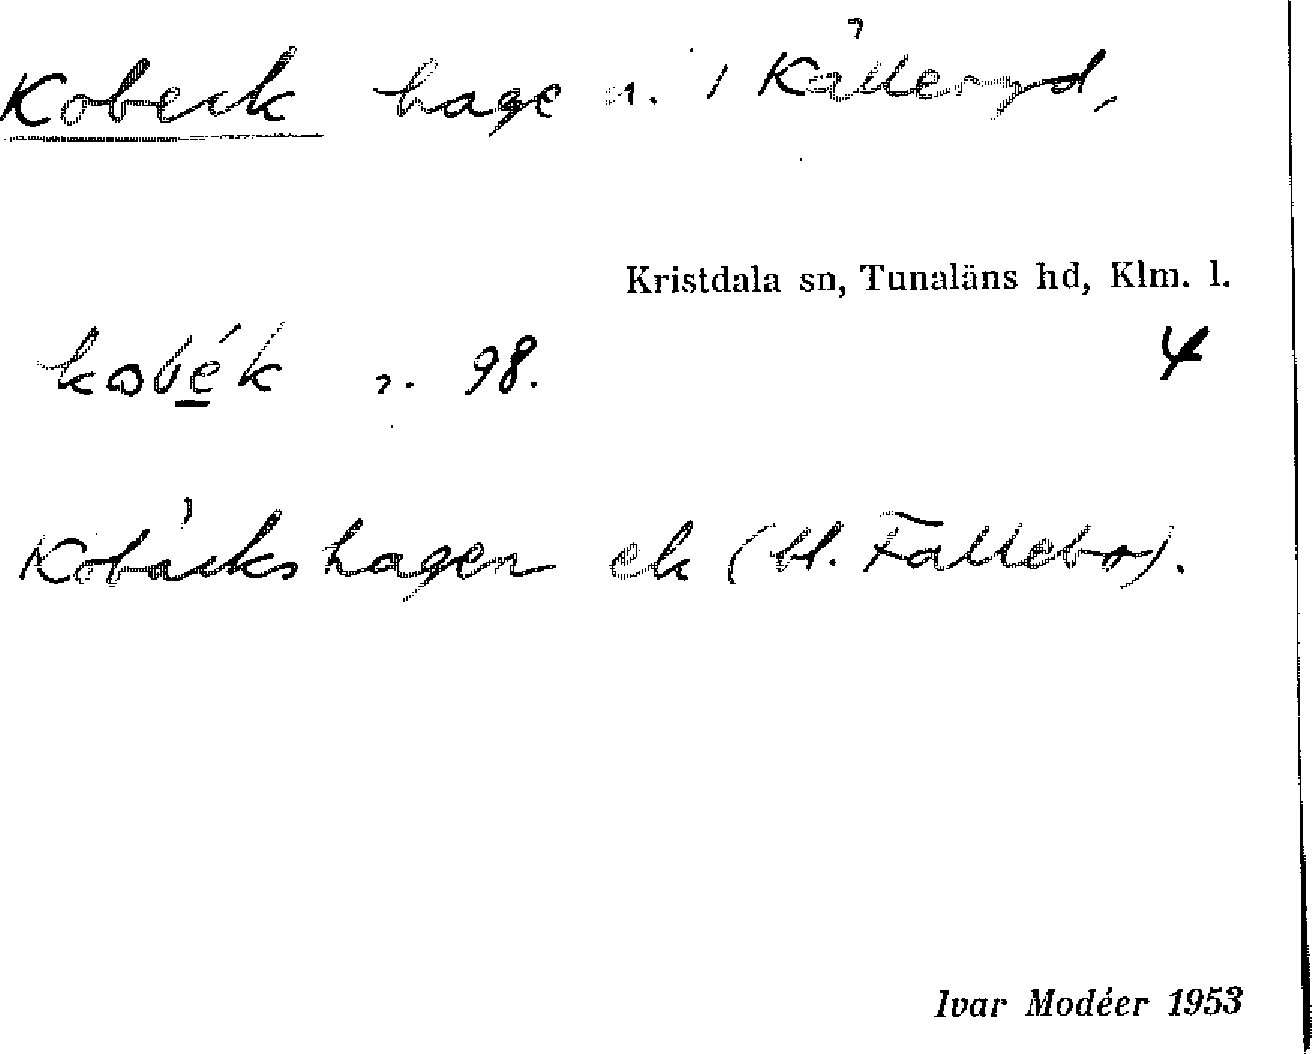 Kobeck hage n. i Källeryd,
Kristdala sn, Tunaläns hd, Klm. l.
kobék n. 98. 4
Kobäckshagen ek (bl. Fallebo).
Ivar Modéer 1953